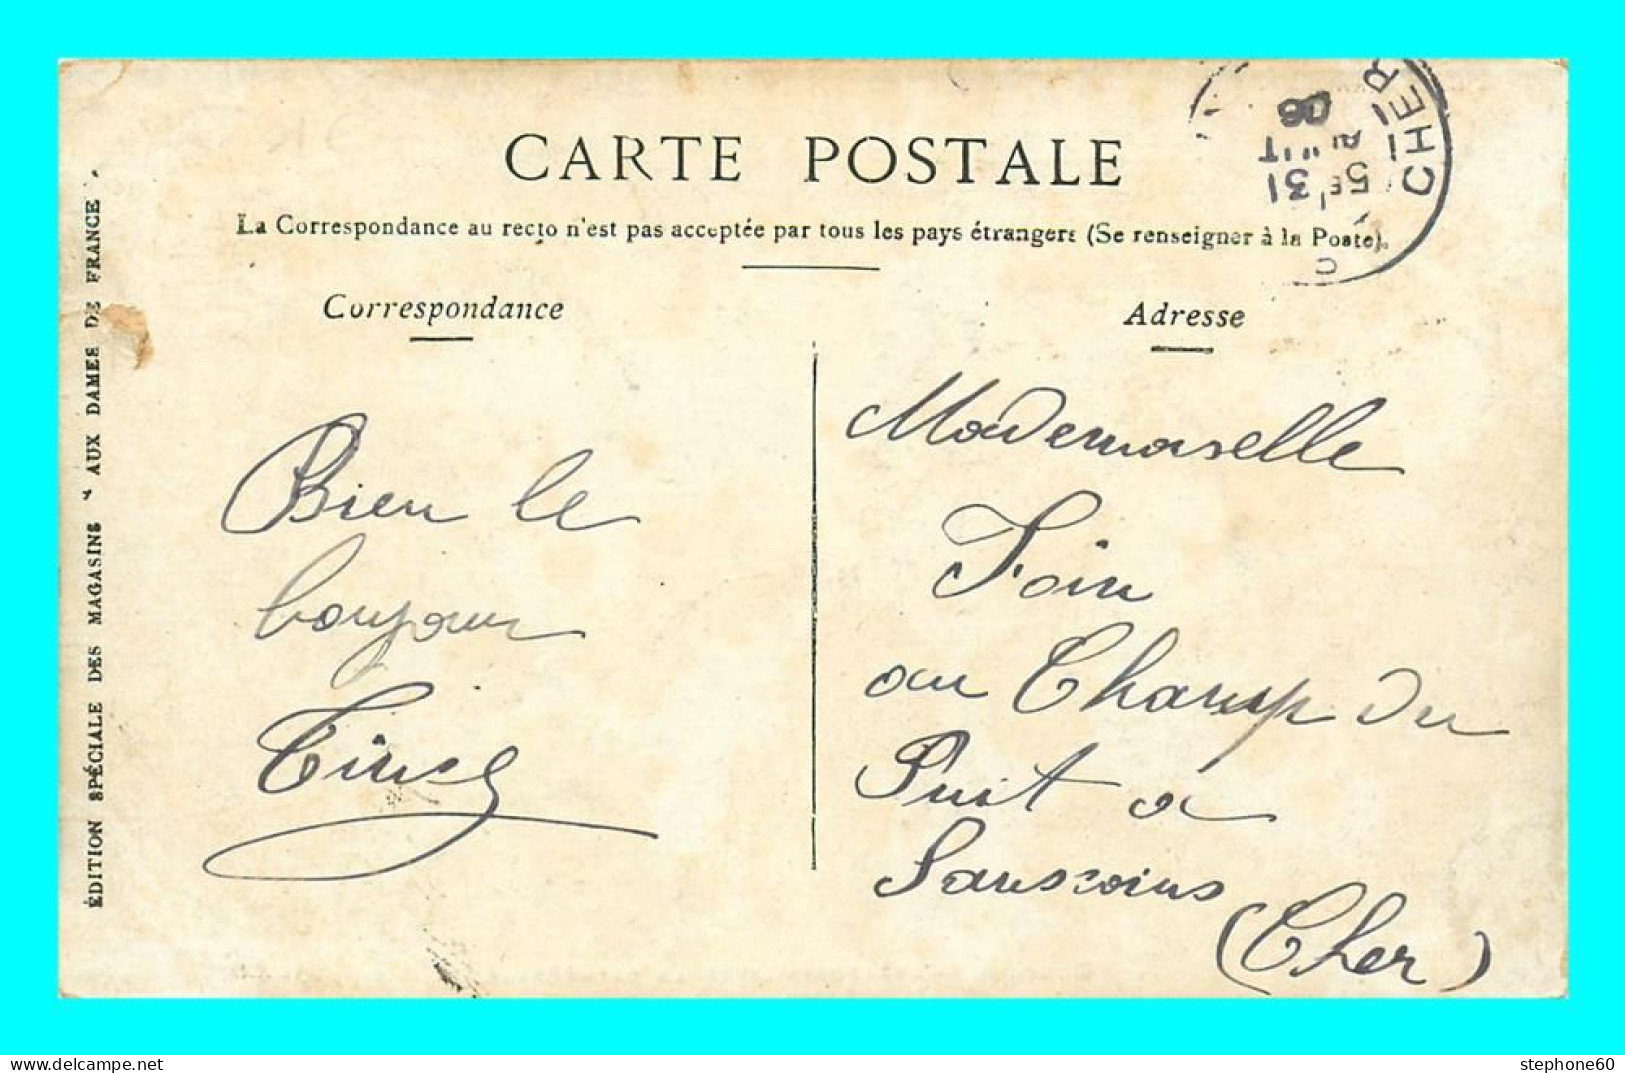 CARTE POSTALE
La Correspondance au recto n'est pas acceptée par tous les pays étrangers (Se renseigner à la Poste).
Correspondance
Bien le
bonjour
Adresse
Mademoiselle
Foin
au Champ du
Puit a
Sanscoins
(Cher)
CHER
5E 31
AOUT
06
ÉDITION SPÉCIALE DES MAGASINS "AUX DAMES DE FRANCE"
stephone60